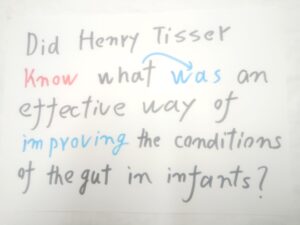 Did Henry Tisser
Know what was an
effective way of
improving the conditions
of the gut in infants?